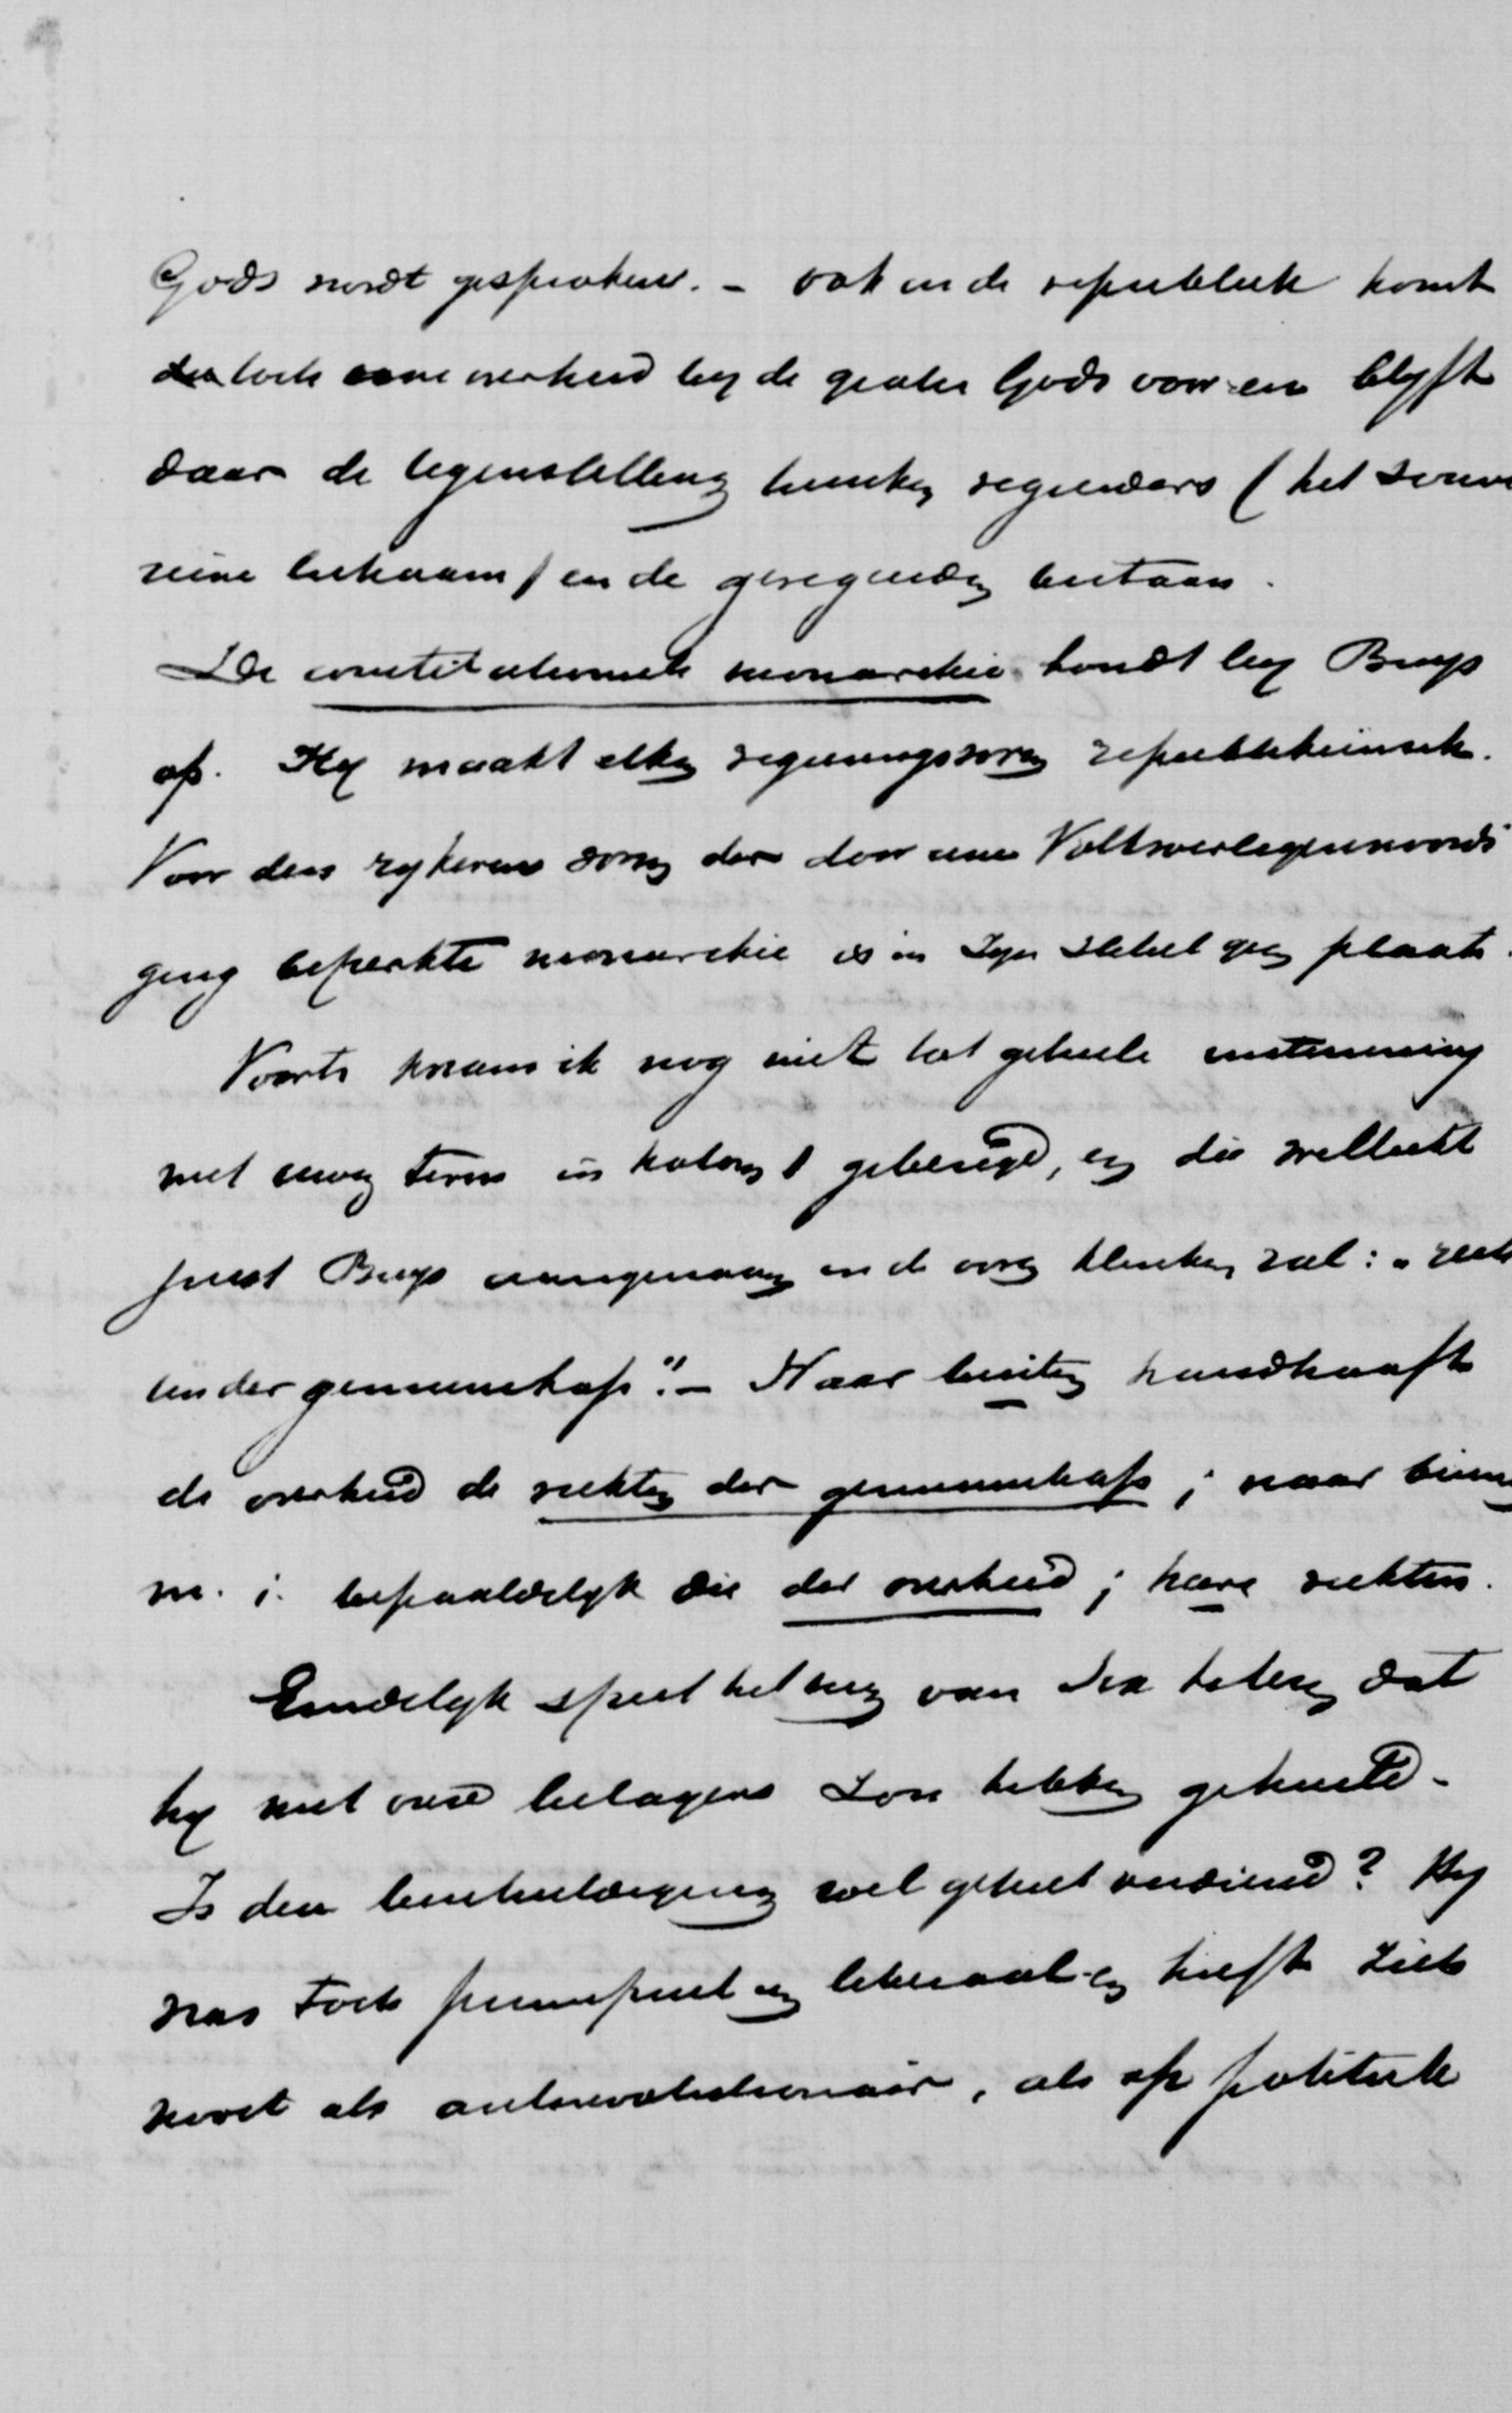 Gods wordt gesproken. – ook in de republiek komt
toch eene overheid by de gratie Gods voor en blyft
daar de tegenstelling tusschen regeerders (het souve
reine lichaam) en de geregeerden bestaan.
De constitutioneele monarchie houdt by Buys
op. Hy maakt elken regeeringsvorm republikeinsch.
Voor den rykeren vorm der door eene Volksvertegenwoordi
ging beperkte monarchie is in zyn stelsel geen plaats.
Voorts kwam ik nog niet tot geheele instemming
met eenen term in kolom 1 gebezigd, en die wellicht
juist Buys aangenaam in de ooren klinken zal: „rech
ten der gemeenschap". – Naar buiten handhaaft
de overheid de rechten der gemeenschap; naar binnen
m. i. bepaaldelyk die der overheid; hare rechten.
Eindelyk speet het my van Dr te lezen dat
hy met onze belagers zou hebben geheuld.
Is deze beschuldiging wel geheel verdiend? Hy
was toch principieel en liberaal en heeft zich
nooit als antirevolutionair, als op politiek